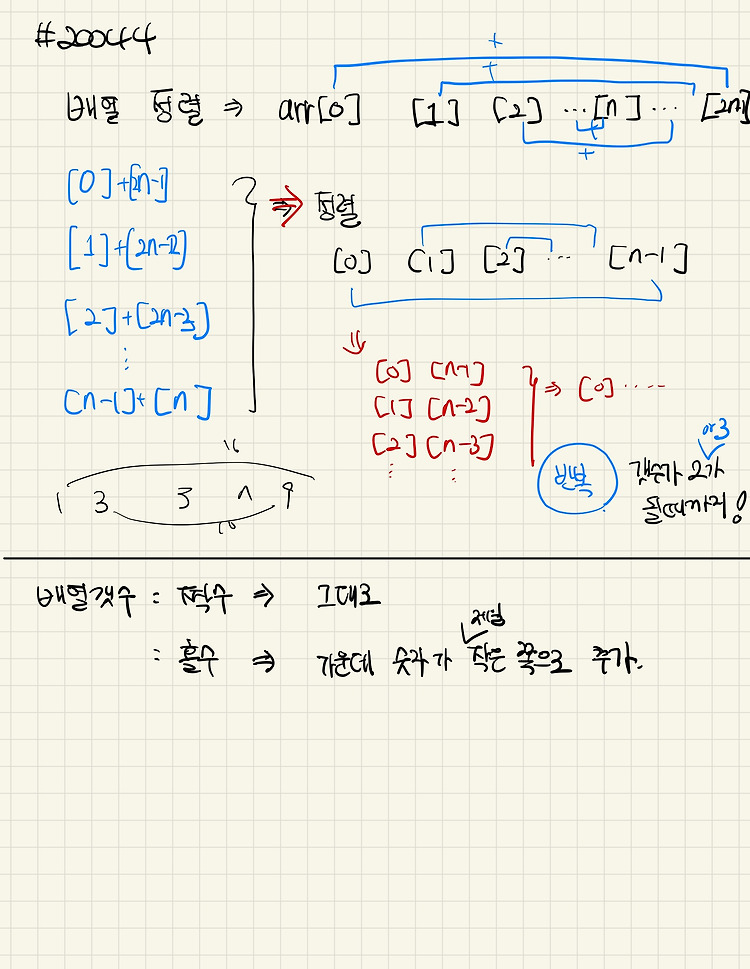 #20044
배열 정렬 ⇒ arr[0] [1] [2] ...[n] ... [2n-1]
+
+
+
[0]+[2n-1]
[1]+[2n-2]
[2]+[2n-3]
⋮
[n-1]+[n]
⇒ 정렬
[0] [1] [2] ... [n-1]
⇓
[0] [n-1]
[1] [n-2]
[2] [n-3]
⋮ ⋮
⇒ [0] ....
반복
or 3
갯수가 2가
될때까지!
16
1 3 3 9
10
배열갯수 : 짝수 ⇒ 그대로
: 홀수 ⇒ 가운데 숫자가 제일 작은 쪽으로 추가.